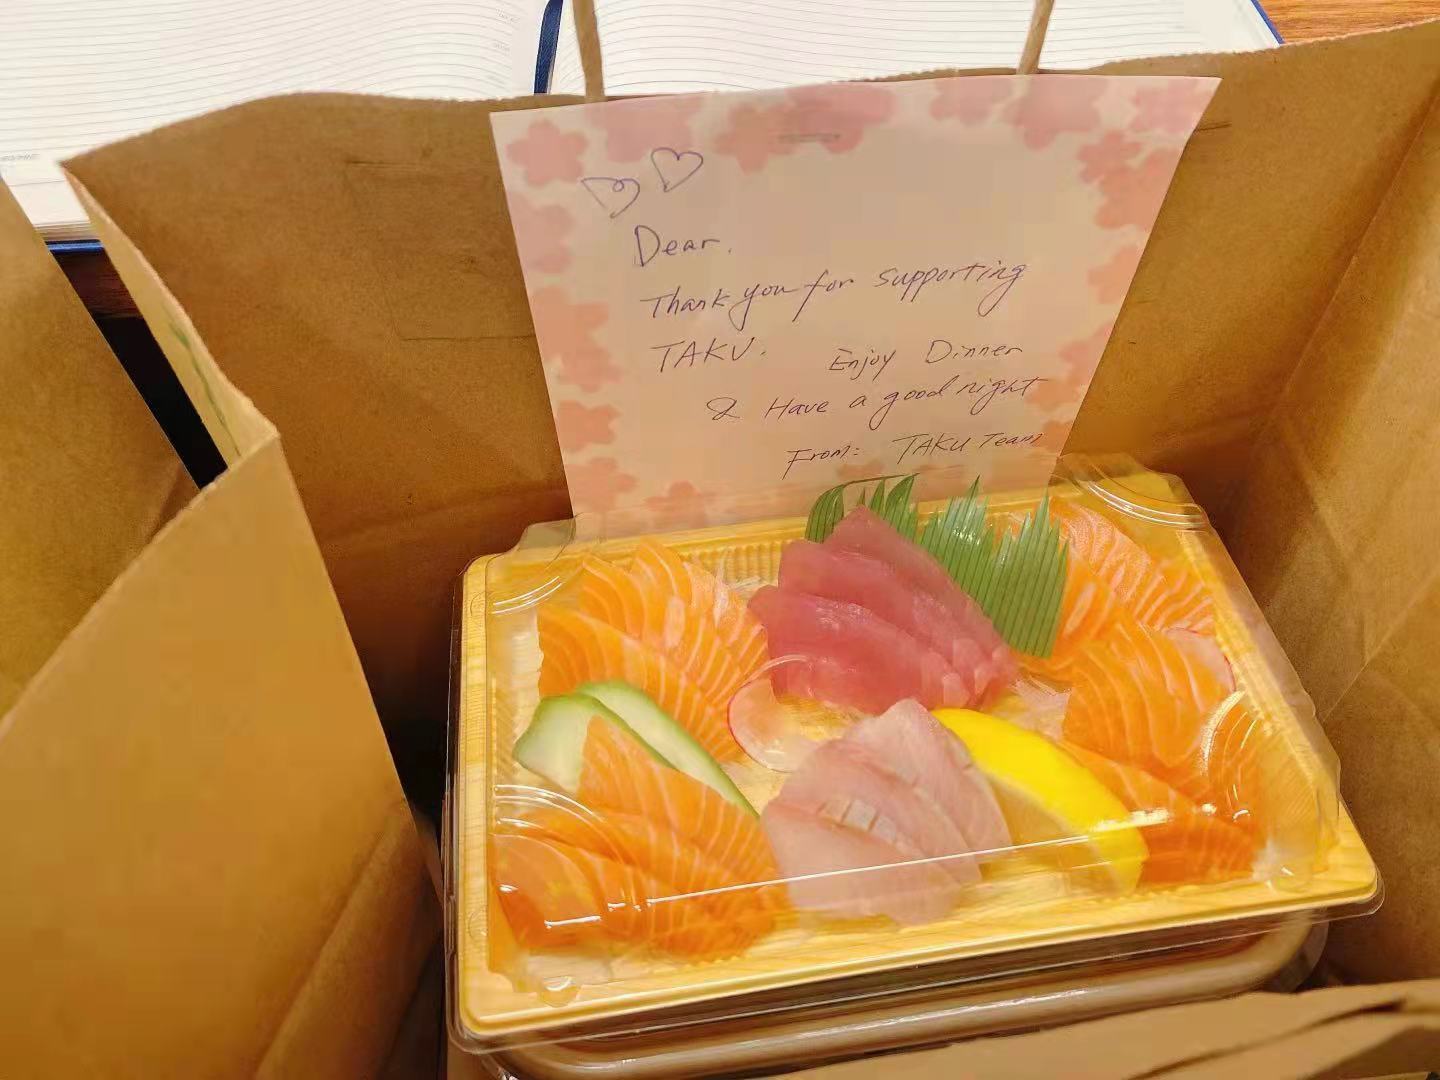 Dear.
Thank you for supporting
TAKU. Enjoy Dinner
& Have a good night
From: TAKU Team